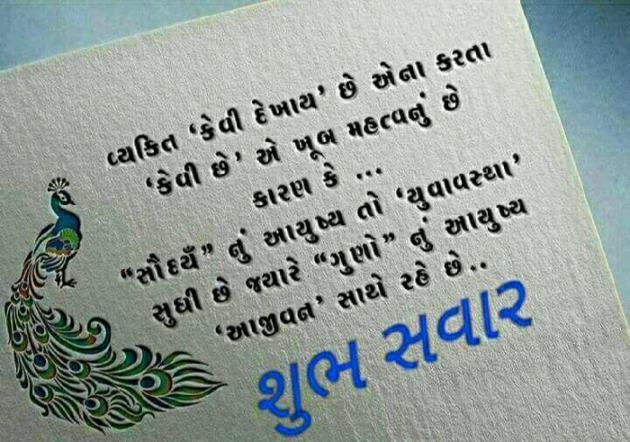 વ્યકિત ‘કેવી દેખાય’ છે એના કરતા
‘કેવી છે’ એ ખૂબ મહત્વનું છે
કારણ કે ...
“સૌદર્યં” નું આયુષ્ય તો ‘યુવાવસ્થા’
સુધી છે જ્યારે “ગુણો” નું આયુષ્ય
‘આજીવન’ સાથે રહે છે..
શુભ સવાર